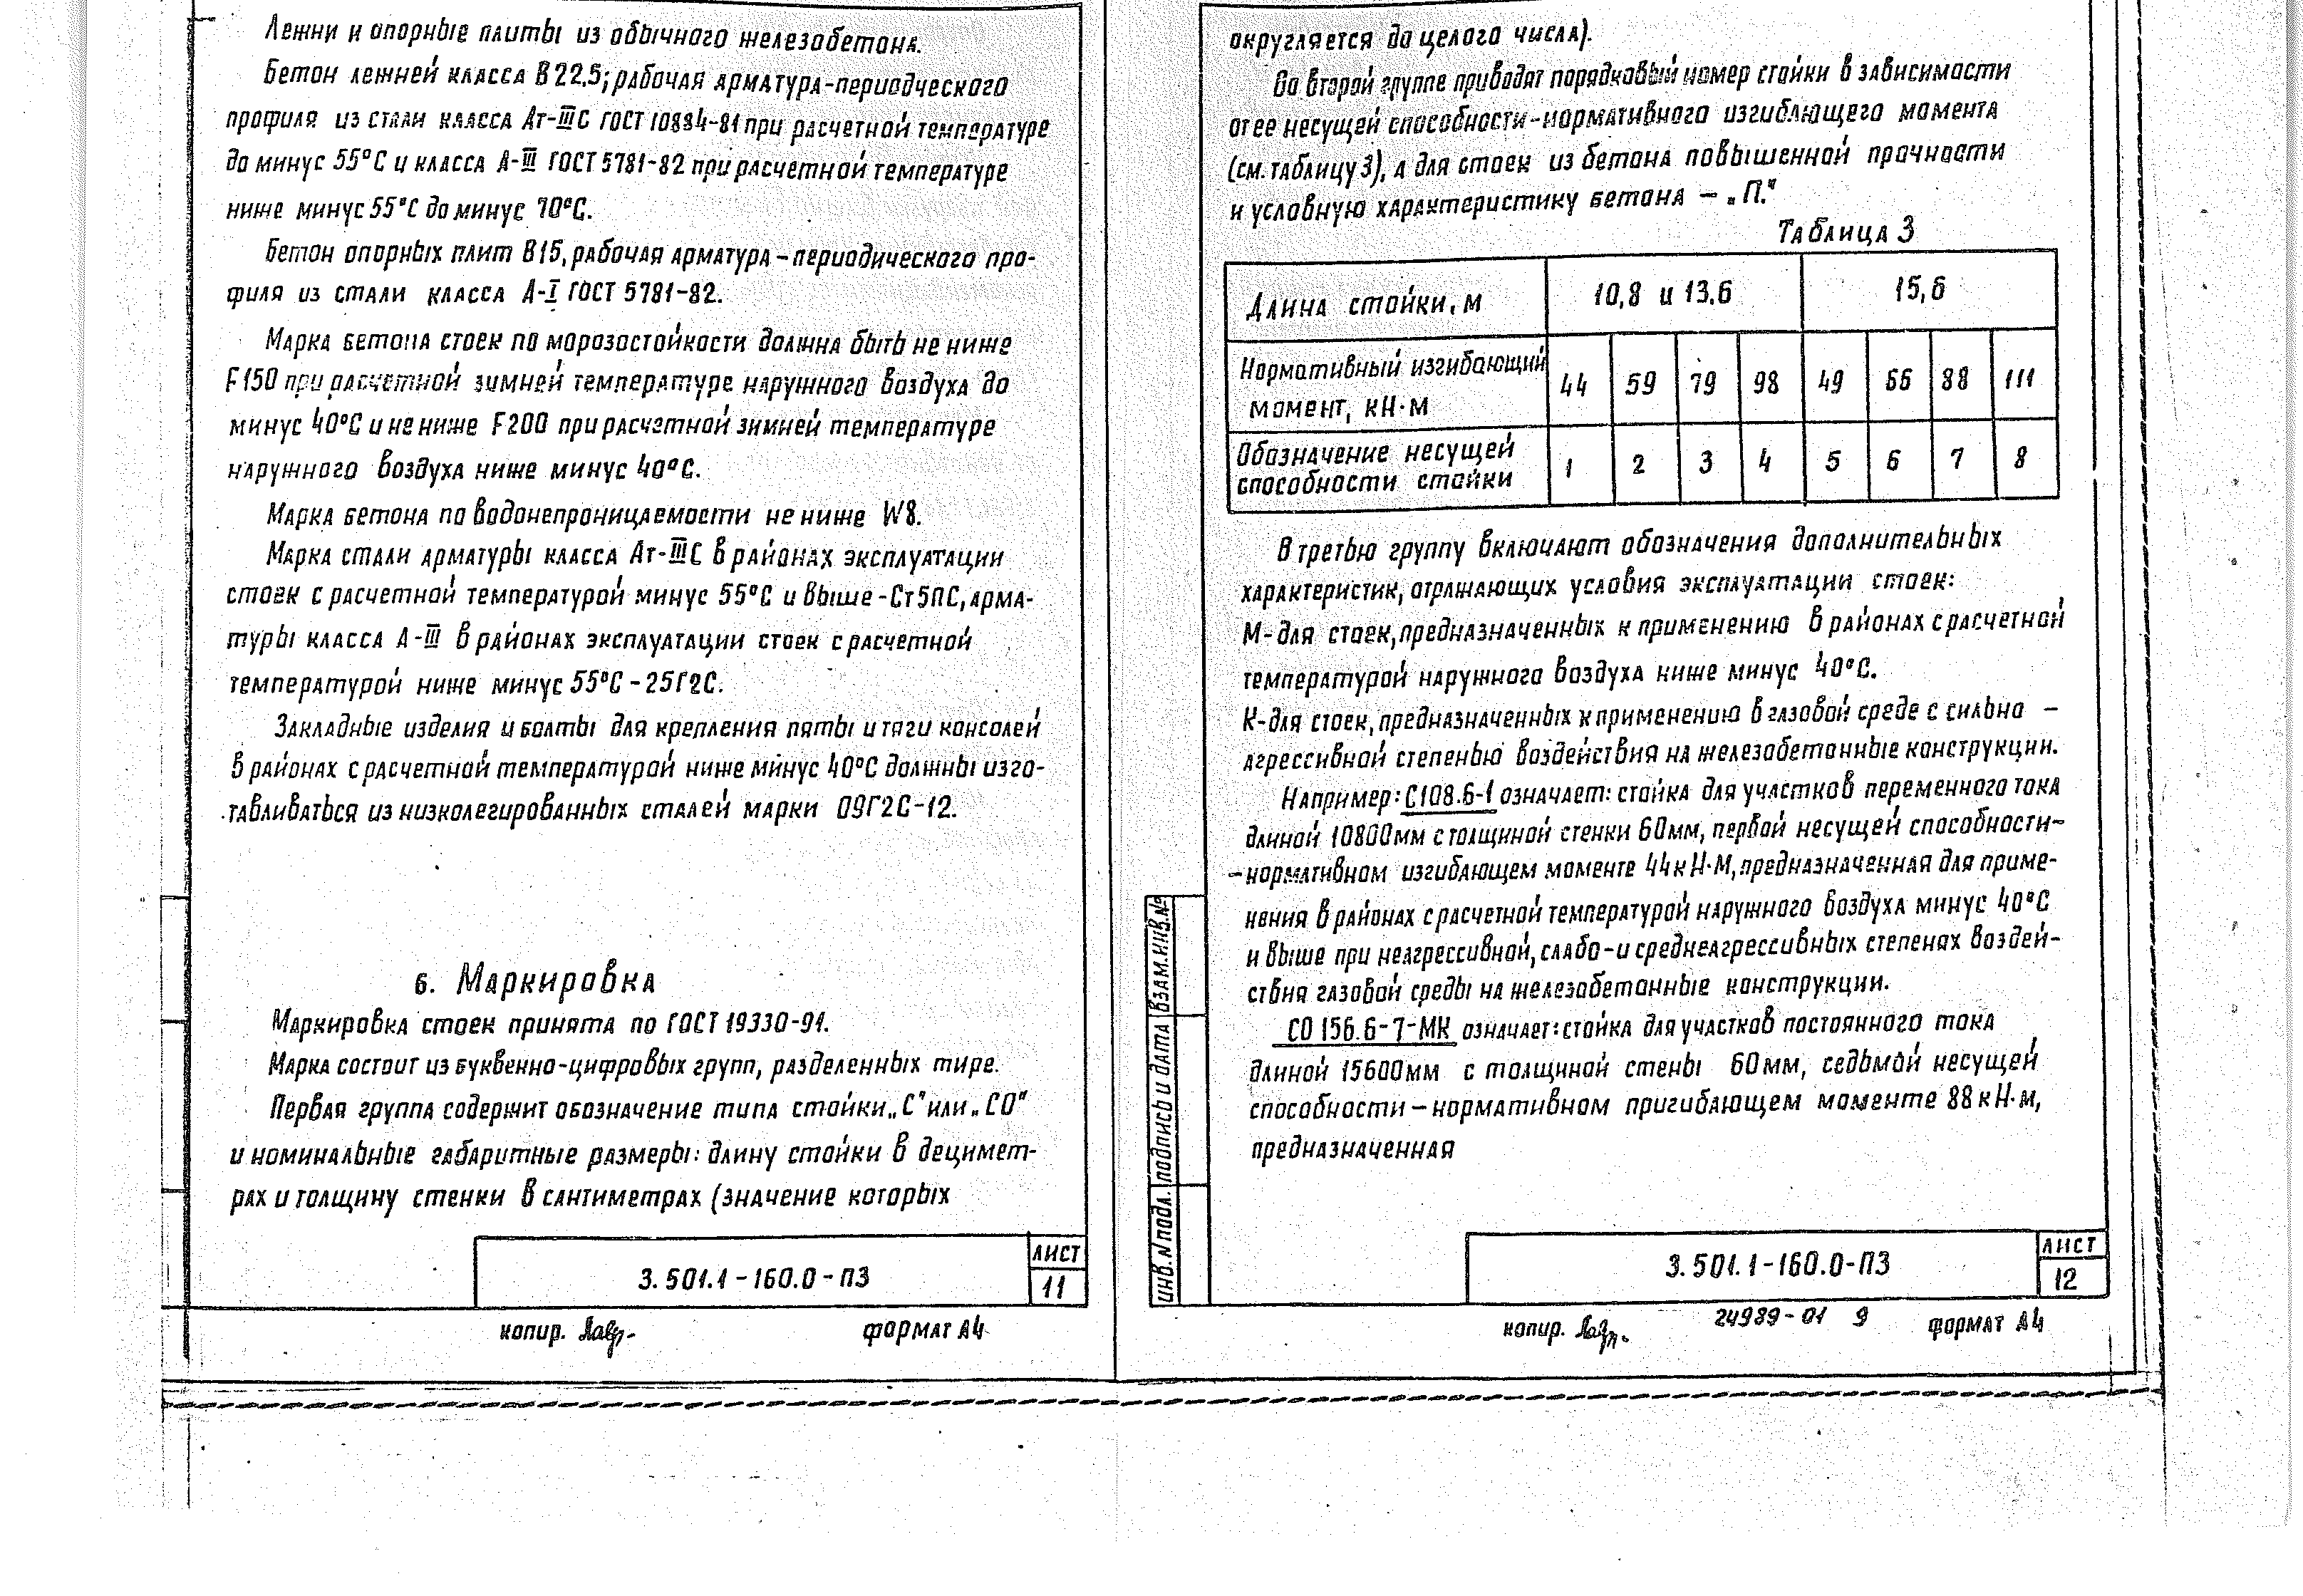 Лежни и опорные плиты из обычного железобетона.
Бетон лежней класса В22.5; рабочая арматура-периодического
профиля из стали класса Ат-IIIС ГОСТ 10884-81 при расчетной температуре
до минус 55°С и класса А-III ГОСТ 5781-82 при расчетной температуре
ниже минус 55°С до минус 70°С.
Бетон опорных плит В15, рабочая арматура-периодического про-
филя из стали класса А-I ГОСТ 5781-82.
Марка бетона стоек по морозостойкости должна быть не ниже
F150 при расчетной зимней температуре наружного воздуха до
минус 40°С и не ниже F200 при расчетной зимней температуре
наружного воздуха ниже минус 40°С.
Марка бетона по водонепроницаемости не ниже W8.
Марка стали арматуры класса Ат-IIIС в районах эксплуатации
стоек с расчетной температурой минус 55°С и выше-Ст5ПС, арма-
туры класса А-III в районах эксплуатации стоек с расчетной
температурой ниже минус 55°С-25Г2С.
Закладные изделия и болты для крепления пяты и тяги консолей
в районах с расчетной температурой ниже минус 40°С должны изго-
тавливаться из низколегированных сталей марки 09Г2С-12.
6. Маркировка
Маркировка стоек принята по ГОСТ 19330-91.
Марка состоит из буквенно-цифровых групп, разделенных тире.
Первая группа содержит обозначение типа стойки „С" или „СО"
и номинальные габаритные размеры: длину стойки в децимет-
рах и толщину стенки в сантиметрах (значение которых
3.501.1-160.0-ПЗ
лист
11
копир.
формат А4
округляется до целого числа).
Во второй группе приводят порядковый номер стойки в зависимости
от ее несущей способности-нормативного изгиблющего момента
(см. таблицу 3), а для стоек из бетона повышенной прочности
и условную характеристику бетона - „П."
Таблица 3
Длина стойки, м 10,8 и 13.6 15,6
Нормативный изгибающий
момент, кН·м 44 59 79 98 49 66 88 111
Обозначение несущей
способности стойки 1 2 3 4 5 6 7 8
В третью группу включают обозначения дополнительных
характеристик, отражающих условия эксплуатации стоек:
М-для стоек, предназначенных к применению в районах с расчетной
температурой наружного воздуха ниже минус 40°С.
К-для стоек, предназначенных к применению в газовой среде с сильно -
агрессивной степенью воздействия на железобетонные конструкции.
Например: С108.6-1 означает: стойка для участков переменного тока
длиной 10800мм с толщиной стенки 60мм, первой несущей способности-
-нормативном изгибающем моменте 44кН·м, предназначенная для приме-
нения в районах с расчетной температурой наружного воздуха минус 40°С
и выше при неагрессивной, слабо-и среднеагрессивных степенях воздей-
ствия газовой среды на железобетонные конструкции.
СО 156.6-7-МК означает: стойка для участков постоянного тока
длиной 15600мм с толщиной стены 60мм, седьмой несущей
способности-нормативном пригибающем моменте 88кН·м,
предназначенная
инв. N подл. подпись и дата взам. инв. №
3.501.1-160.0-ПЗ
лист
12
копир.
24989-01 9
формат А4